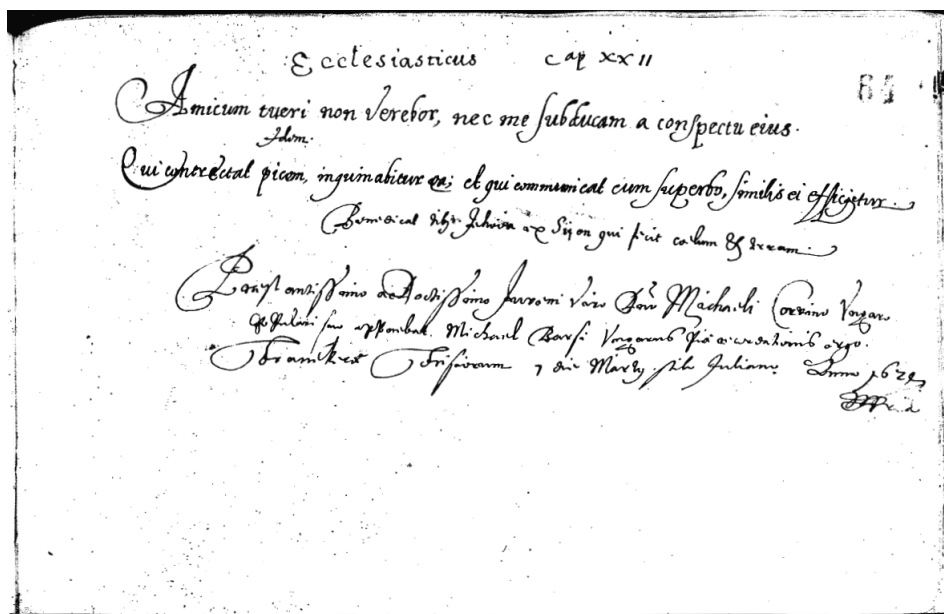 Ecclesiasticus cap XXII
64
Amicum tueri non verebor, nec me subducam a conspectu eius.
Idem.
Qui contrectat picem, inquinabitur ea; et qui communicat cum superbo, similis ei efficietur.
Benedicat tibi Jehova ex Sijon qui fecit coelum & terram.
Praestantissimo ac Doctissimo Juveni Viro Dno Michaeli Corvino Vngaro
Populari suo apponebat Michael Barsi Vngarus recordationis ergo.
Franekerae Frisiorum 7 die Martij stilo Juliano Anno